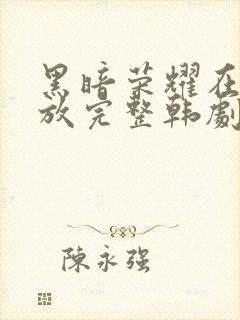 黑暗荣耀在
放完整韩劇
陳永强